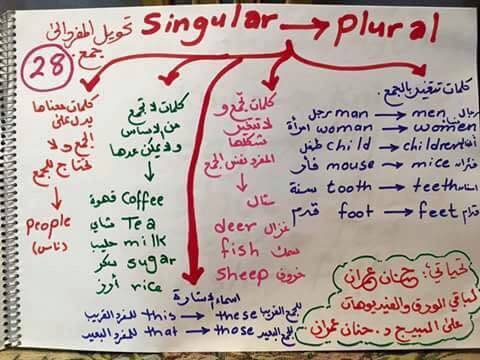 Singular → Plural تحويل المفرد إلى جمع
28
كلمات تتغير بالجمع
رجل man → men رجال
امرأة woman → women نساء
طفل child → children أطفال
فأر mouse → mice فئران
سنة tooth → teeth اسنان
قدم foot → feet
كلمات تجمع و
لا تتغير
شكلها
المفرد نفس الجمع
مثال
غزال deer
سمك fish
خروف sheep
كلمات لا تجمع
من الأساس
ولا يمكن عدها
قهوة Coffee
شاي Tea
حليب milk
سكر sugar
أرز rice
كلمات معناها
يدل على
الجمع ولا
تحتاج للجمع
people
(ناس)
اسماء إشارة
للمفرد القريب this → these للجمع القريب
للمفرد البعيد that → those للجمع البعيد
تحياتي: حنان عمران
لباقي الورق والفيديوهات
على البيدج د. حنان عمران